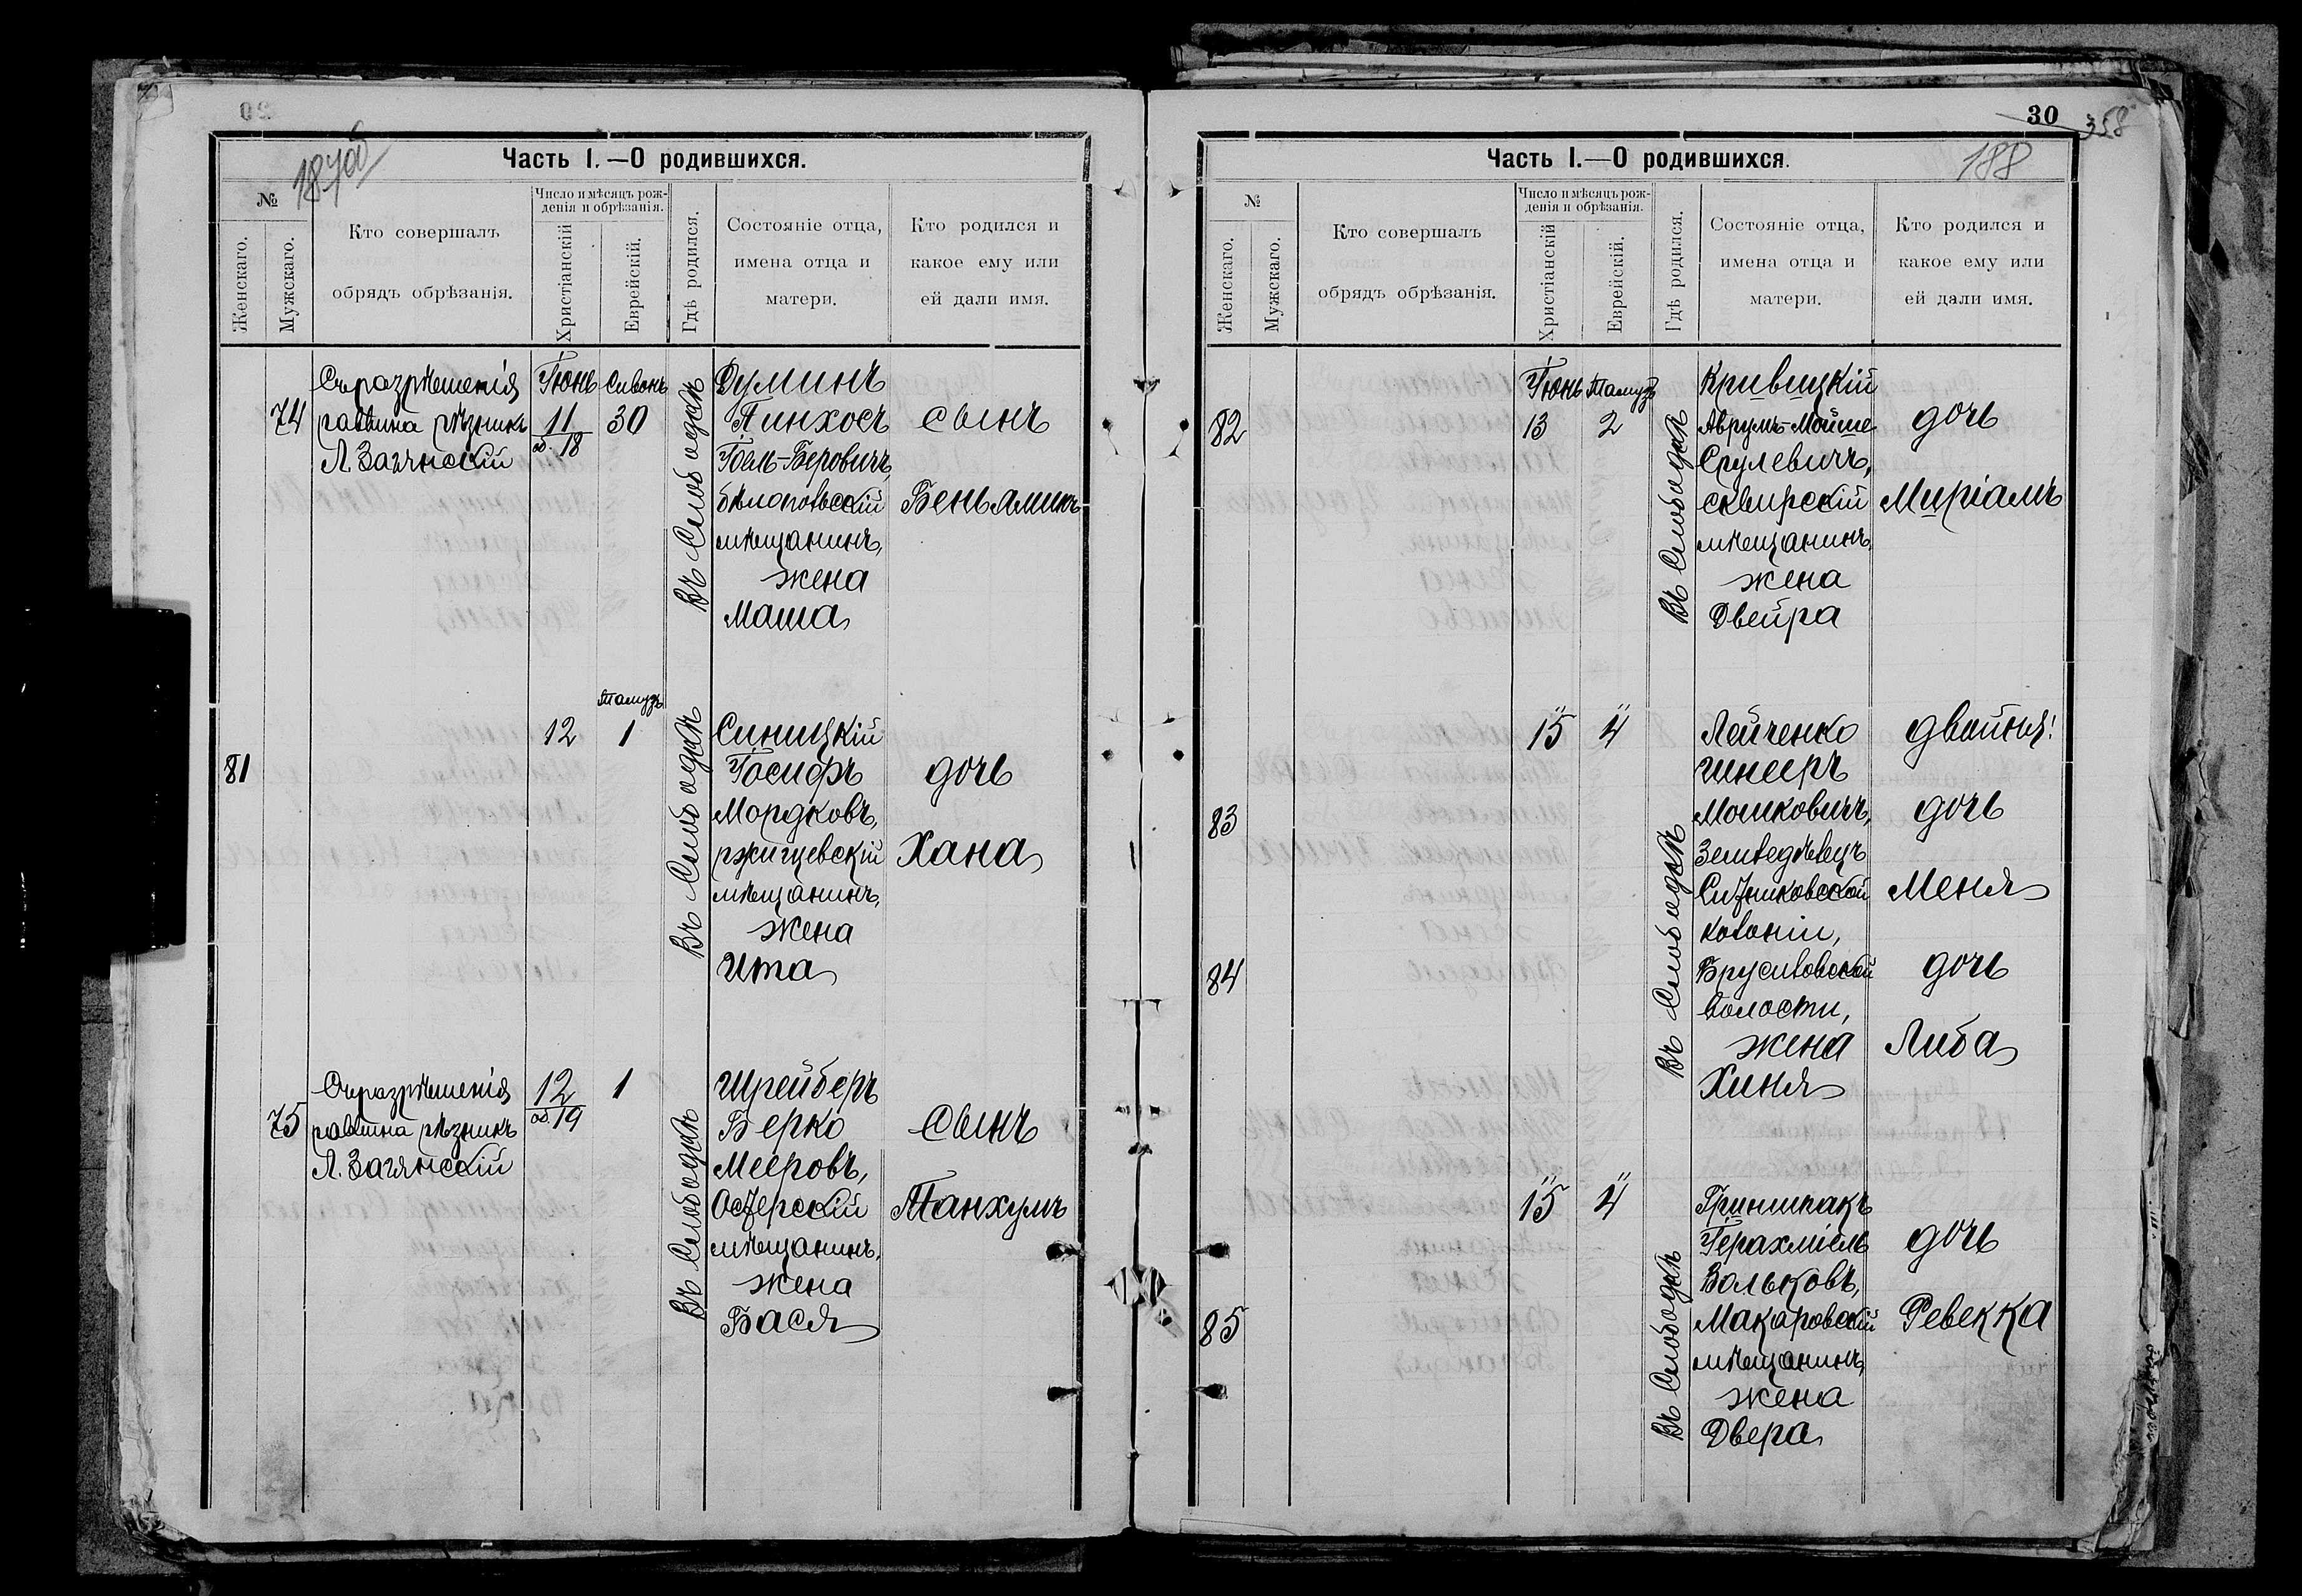 18706
Часть I.—О родившихся.
№
Женскаго.
Мужскаго.
Кто совершалъ
обрядъ обрѣзанія.
Число и мѣсяцъ рож-
денія и обрѣзанія.
Христіанскій
Еврейскій.
Гдѣ родился.
Состояніе отца,
имена отца и
матери.
Кто родился и
какое ему или
ей дали имя.
74
Съ разрѣшенія
раввина рѣзникъ
Л. Загянскій
Іюнь
11
об. 18
Сивонъ
30
Въ Слободкѣ
Думинъ
Пинхосъ
Іоель-Беровичъ,
мѣщанинъ,
жена
Маша
сынъ
Беньяминъ
81
12
Тамузъ
1
Въ Слободкѣ
Синицкій
Іосифъ
Мордковъ,
ржищевскій
мѣщанинъ,
жена
Ита
дочь
Хана
75
Съ разрѣшенія
раввина рѣзникъ
Л. Загянскій
12
об. 19
1
Въ Слободкѣ
Шрейберъ
Берко
Мееровъ,
Остерскій
мѣщанинъ,
жена
Бася
сынъ
Танхумъ
30
358
188
Часть I.—О родившихся.
№
Женскаго.
Мужскаго.
Кто совершалъ
обрядъ обрѣзанія.
Число и мѣсяцъ рож-
денія и обрѣзанія.
Христіанскій
Еврейскій.
Гдѣ родился.
Состояніе отца,
имена отца и
матери.
Кто родился и
какое ему или
ей дали имя.
82
Іюнь
13
Тамузъ
2
Въ Слободкѣ
Кривицкій
Аврумъ-Мойше
Срулевичъ,
сквирскій
мѣщанинъ,
жена
Двейра
дочь
Миріамъ
83
84
15
4
Въ Слободкѣ
Лейченко
Шнееръ
Мошковичъ,
Земледѣлецъ
Ситниковской
колоніи,
Брусиловской
волости,
жена
Хиня
двойня!
дочь
Меня
дочь
Либа
85
15
4
Въ Слободкѣ
Гриншпакъ
Іерахміель
Вольковъ,
Макаровскій
мѣщанинъ,
жена
Двера
дочь
Ревекка